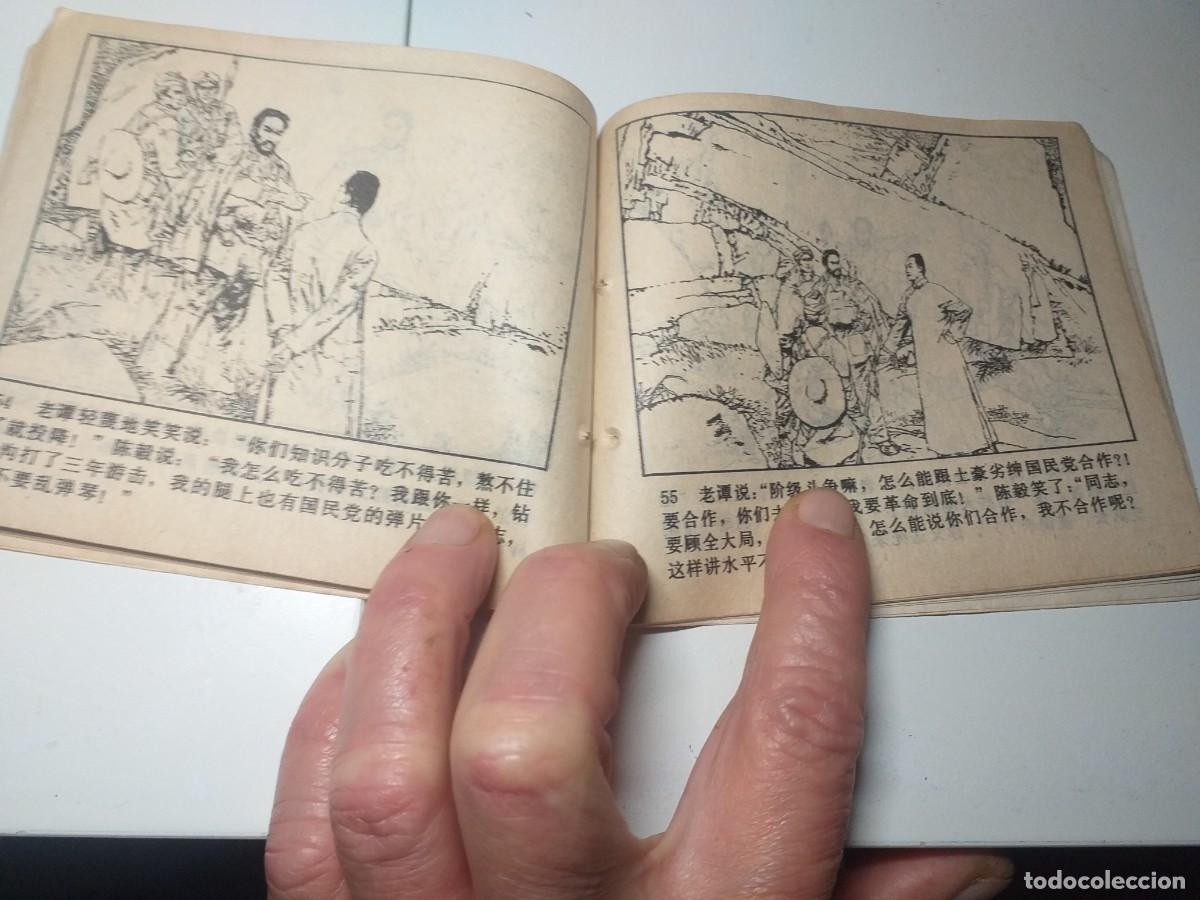 54 老谭轻蔑地笑笑说：“你们知识分子吃不得苦，熬不住
就投降！”陈毅说：“我怎么吃不得苦？我跟你一样，钻
沟打了三年游击，我的腿上也有国民党的弹片
不要乱弹琴！”
55 老谭说：“阶级斗争嘛，怎么能跟土豪劣绅国民党合作？！
要合作，你们去 我要革命到底！”陈毅笑了：“同志，
要顾全大局， 怎么能说你们合作，我不合作呢？
这样讲水平
todocoleccion